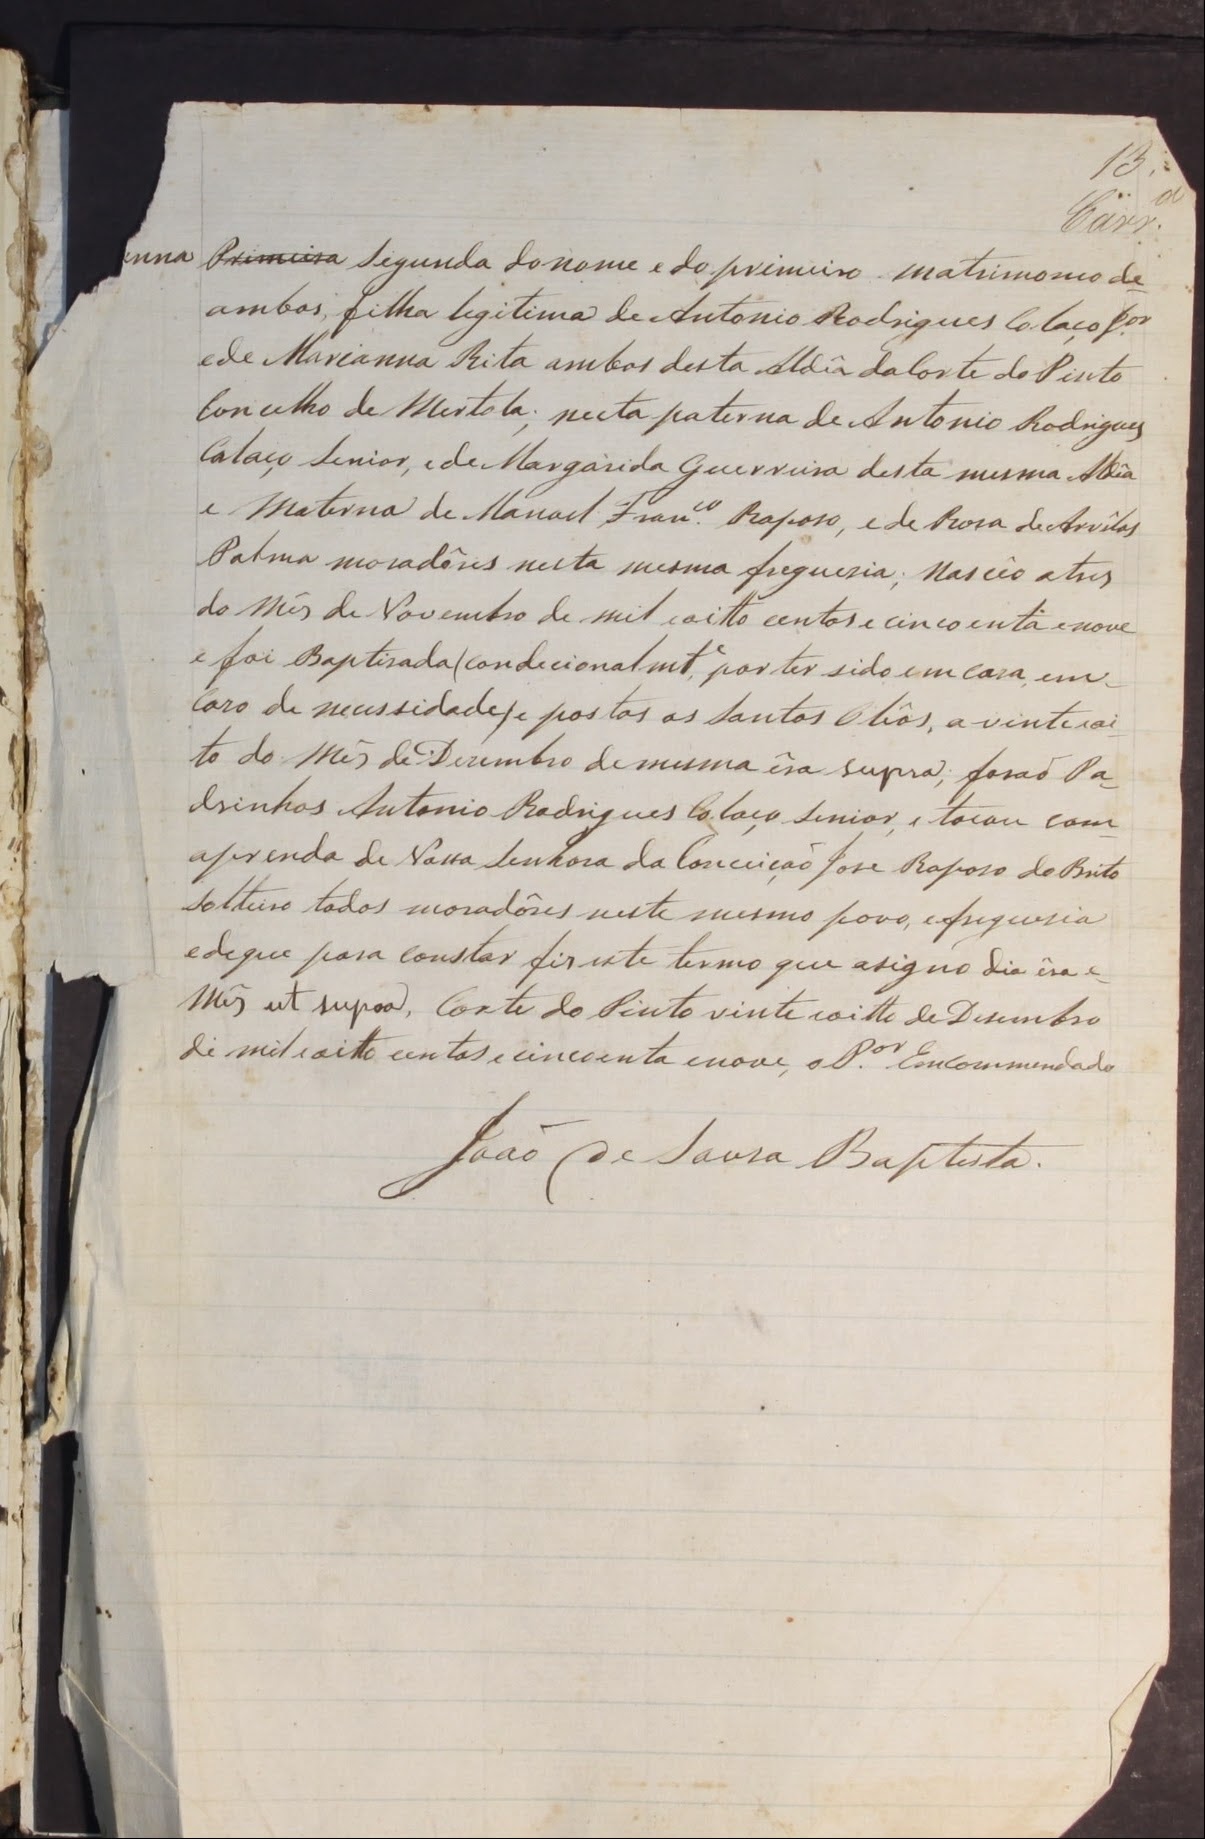 13.
Carr.ª
enna Primeira Segunda do nome e do primeiro matrimonio de
ambos, filha legitima de Antonio Rodrigues Colaço J.or
e de Marianna Rita ambos desta Aldêa da Corte do Pinto
Concelho de Mertola; neeta paterna de Antonio Rodrigues
Colaço Senior, e de Margarida Guerreira desta mesma Aldêa
e Materna de Manoel Fran.co Raposo, e de Rosa de
Palma moradôres nesta mesma freguesia; Nascêo a tres
do Mês de Novembro de mil e oitto centos e cincoenta e nove
e foi Baptisada (condecionalmt.e por ter sido em casa, em
caso de necessidade) e postos os Santos Olêos, a vinte e oi-
to do Mês de Dezembro de mesma êra supra; foraõ Pa-
drinhos Antonio Rodrigues Colaço Senior, e tocou com
a prenda de Nossa Senhora da Conceiçaõ Jose Raposo do Brito
Solteiro todos moradôres neste mesmo povo, e freguesia
e de que para constar fis este termo que asigno dia êra e
Mês ut supra, Corte do Pinto vinte e oitto de Desembro
de mil e oitto centos e cincoenta e nove, o P.or Encommendado
João de Sousa Baptista.